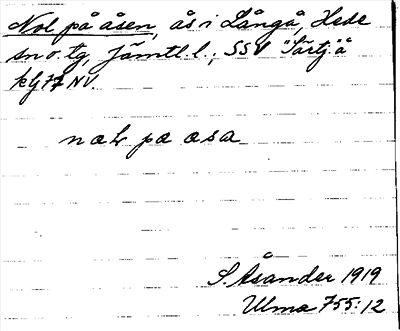 Nol på åsen, ås i Långå, Hede
sn o. tg, Jämtl. l.; SSV "Särtj:å
kbl 77 NV.
naL pa asa
S. Åsander 1919
Ulma 755:12